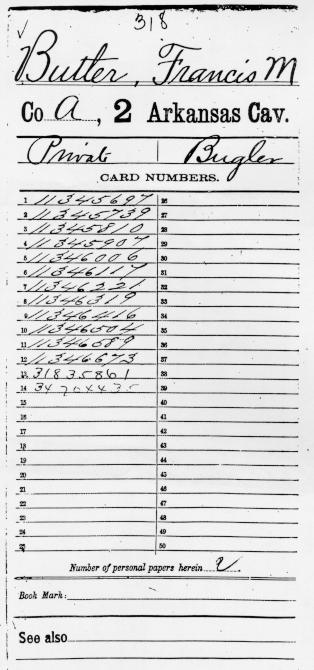 318
Butler, Francis M
Co A, 2 Arkansas Cav.
Private | Bugler
CARD NUMBERS.
1 11345697 26
2 11345739 27
3 11345810 28
4 11345907 29
5 11346006 30
6 11346117 31
7 11346221 32
8 11346319 33
9 11346416 34
10 11346504 35
11 11346589 36
12 11346673 37
13 31835861 38
14 34704435 39
15 40
16 41
17 42
18 43
19 44
20 45
21 46
22 47
23 48
24 49
25 50
Number of personal papers herein 2
Book Mark:
See also